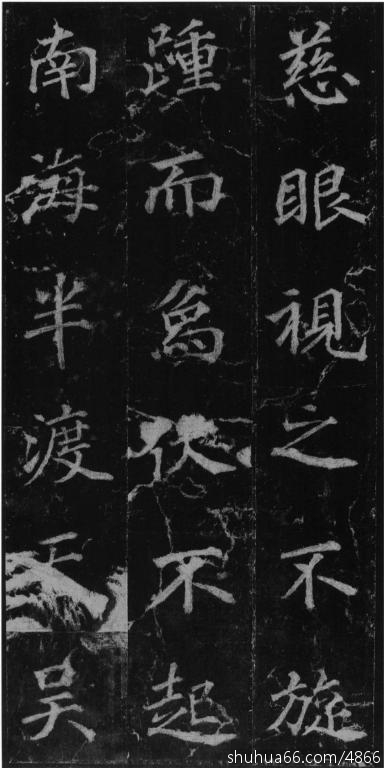 慈眼視之不旋
踵而伏不起
南海半渡天吴
shuhua66.com/4866